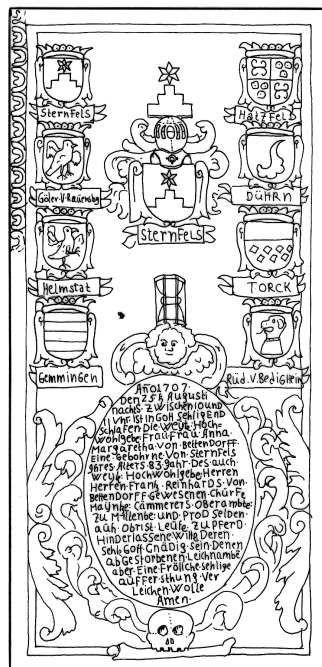 Sternfels
Hatzfeld
Göler·V·Rauensbg
DÜHRN
Sternfels
Helmstat
TORCK
Gemmingen
Rüd.V.Bedigheim
Año1707·
Den 25t Augusti
nachts·zwischen 10 und
11 Vhr·ist in Gott Sehlig End
Schlafen Die weyl·Hoch-
wohlgebe·Frau Frau Anna·
Margaretha·von·Bettendorff·
Eine·Gebohrne·Von·Sternfels
Ihres Alters·83·Jahr·Des·auch·
weyl·Hochwohlgebe·Herren
Herren Frantz·Reinhards·Von·
Bettendorff·Gewesenen·Churfe
Maÿntze·Cammerers·Oberambte·
zu Miltenbe·und·ProzSelden·
auch·Obrist·Leüte·zu PFerD·
Hinderlassene Witib Deren·
Sehle Gott·Gnädig·sein·Denen
abgestorbenen·Leichnambe·
aber·Eine Fröliche·sehlige
aufferstehung·Ver
Leichen·Wolle
Amen·